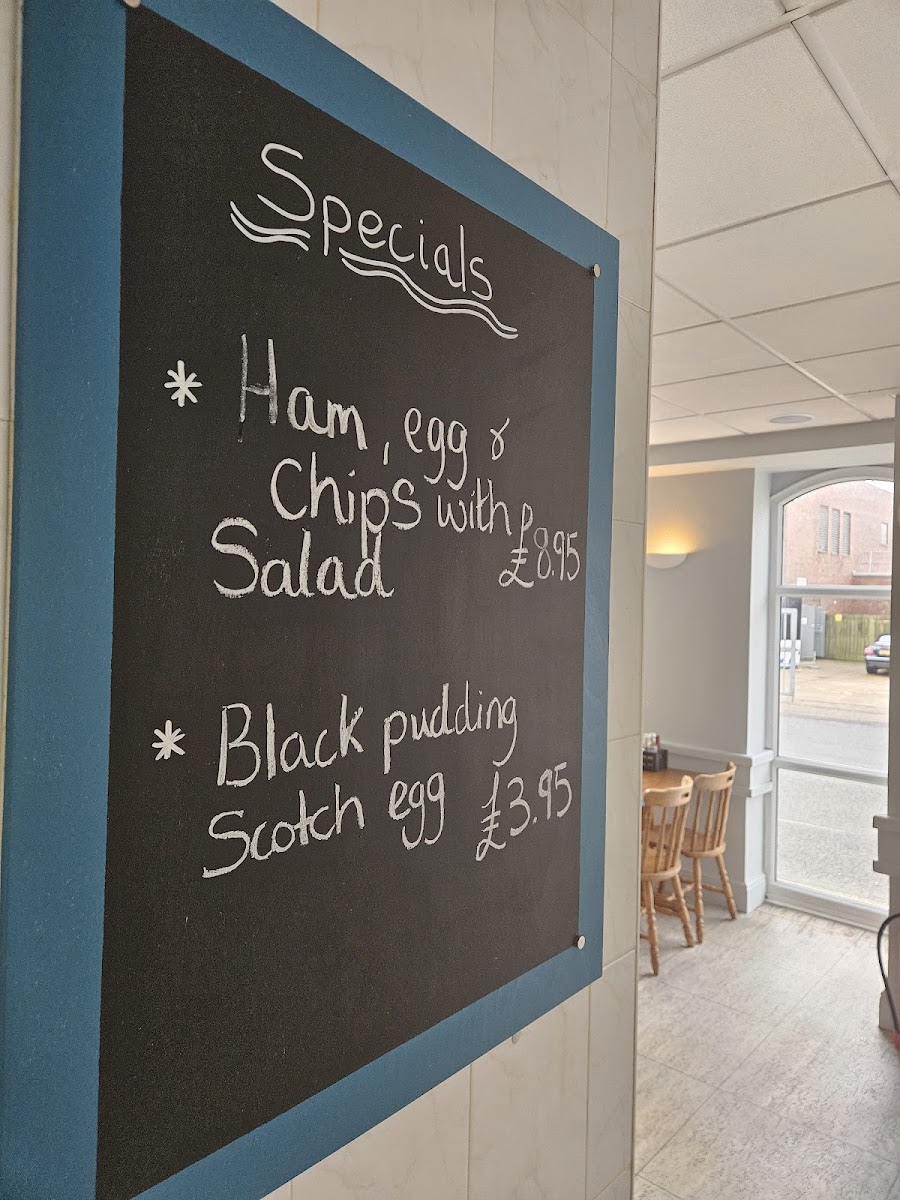 Specials
* Ham, egg &
Chips with
Salad £8.95
* Black pudding
Scotch egg £3.95